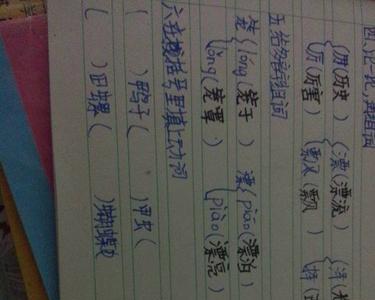 四比一比,再组词
历(历史) 漂(漂流)
厉(厉害) 飘(飘
五给多音字组词
笼 lóng(笼子) 漂 piāo(漂泊)
lǒng(笼罩) piào(漂
六在括号里填上动词
( )鸭子( )甲虫(
( )田螺( )蝴蝶